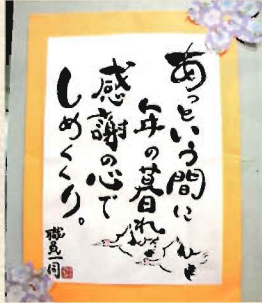 あっという間に
年の暮れ
感謝の心で
しめくくり。
職員一同